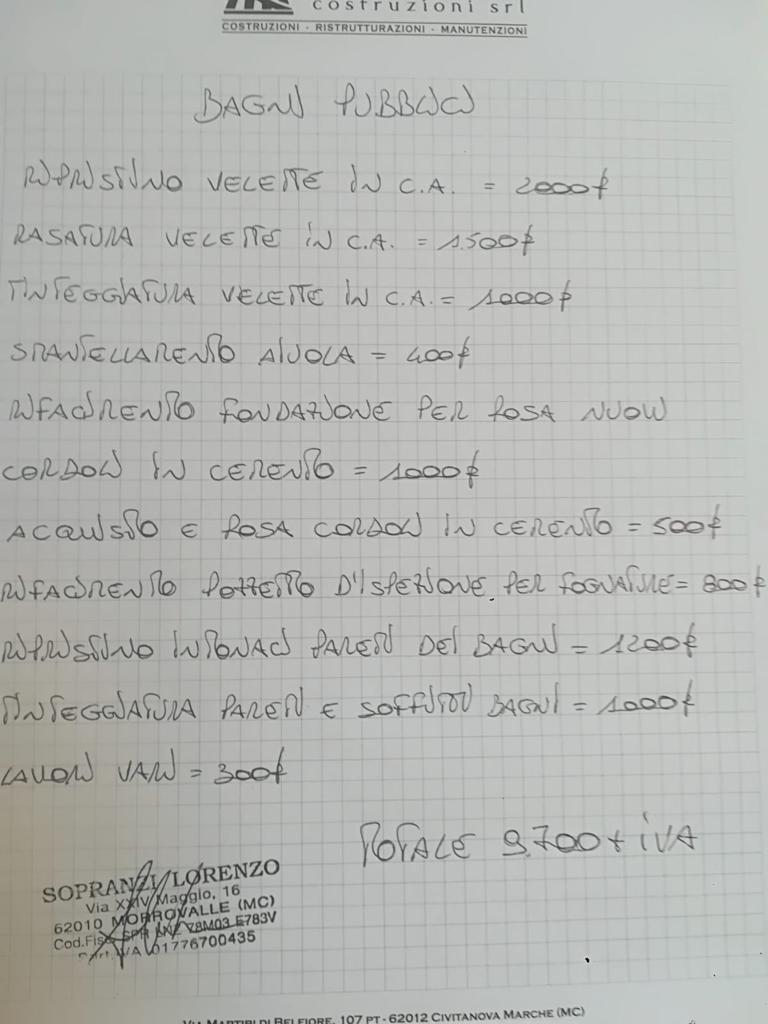 costruzioni srl
COSTRUZIONI · RISTRUTTURAZIONI · MANUTENZIONI
BAGNI PUBBLICI
RIPRISTINO VELETTE IN C.A. = 2000€
RASATURA VELETTE IN C.A. = 1.500€
TINTEGGIATURA VELETTE IN C.A. = 1000€
SMANTELLAMENTO AIUOLA = 400€
RIFACIMENTO FONDAZIONE PER POSA NUOVI
CORDOLI IN CEMENTO = 1000€
ACQUISTO E POSA CORDOLI IN CEMENTO = 500€
RIFACIMENTO POZZETTO D'ISPEZIONE PER FOGNATURE = 800€
RIPRISTINO INTONACI PARETI DEI BAGNI = 1200€
TINTEGGIATURA PARETI E SOFFITTI BAGNI = 1000€
LAVORI VARI = 300€
TOTALE 9.700 + IVA
SOPRANZI LORENZO
Via XXIV Maggio, 16
62010 MORROVALLE (MC)
Cod.Fisc. SPR LNZ 78M03 E783V
Part. IVA 01776700435
VIA MARTIRI DI BELFIORE, 107 PT - 62012 CIVITANOVA MARCHE (MC)